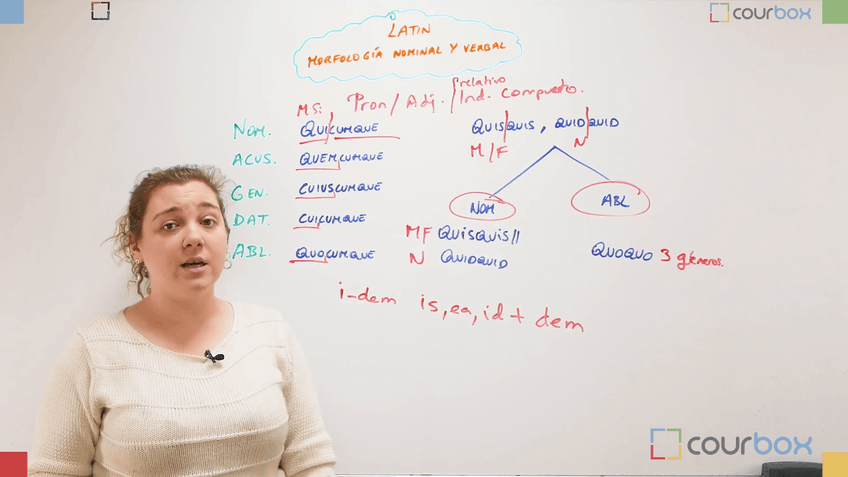 courbox
LATIN
MORFOLOGÍA NOMINAL Y VERBAL
MS: Pron/Adj. relativo/Ind. Compuesto.
NOM. QUICUMQUE
ACUS. QUEMCUMQUE
GEN. CUIUSCUMQUE
DAT. CUICUMQUE
ABL. QUOCUMQUE
QUIS|QUIS, QUID|QUID
M/F N
NOM ABL
MF QUISQUIS//
N QUIDQUID
QUOQUO 3 géneros.
i-dem is, ea, id + dem
courbox